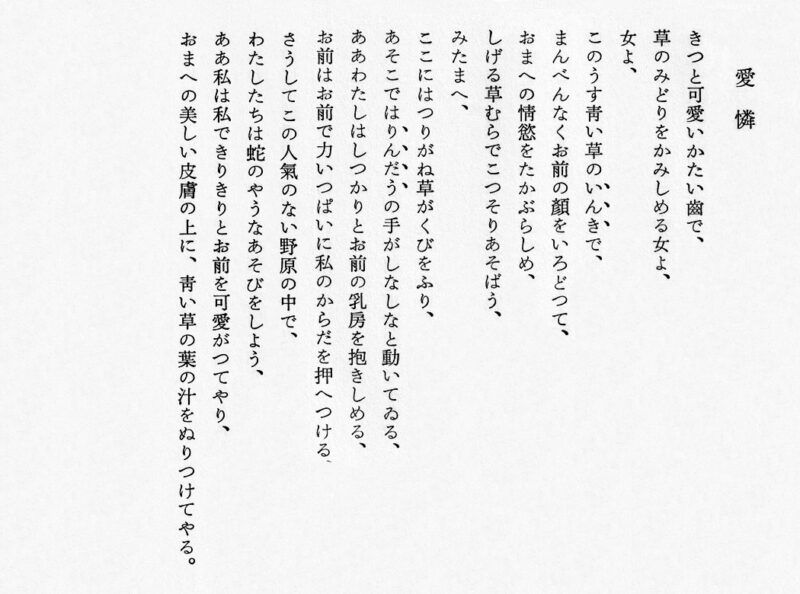 愛憐
きつと可愛いかたい齒で、
草のみどりをかみしめる女よ、
女よ、
このうす青い草のいんきで、
まんべんなくお前の顔をいろどつて、
おまへの情慾をたかぶらしめ、
しげる草むらでこつそりあそばう、
みたまへ、
ここにはつりがね草がくびをふり、
あそこではりんだうの手がしなしなと動いてゐる、
ああわたしはしつかりとお前の乳房を抱きしめる、
お前はお前で力いつぱいに私のからだを押へつける、
さうしてこの人氣のない野原の中で、
わたしたちは蛇のやうなあそびをしよう、
ああ私は私できりきりとお前を可愛がつてやり、
おまへの美しい皮膚の上に、青い草の葉の汁をぬりつけてやる。